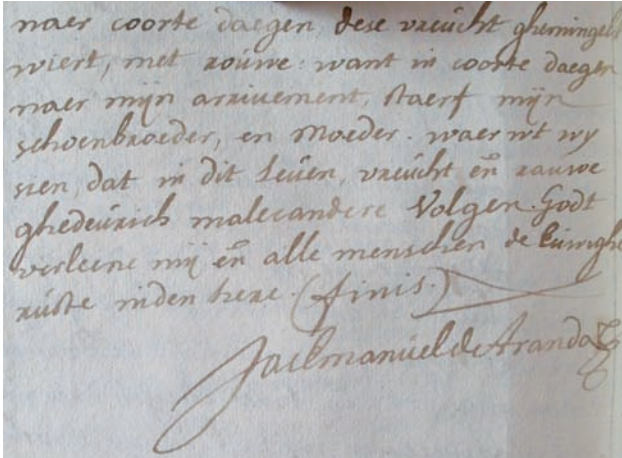 naer coorte daegen dese vreücht ghemingelt
wiert, met rouwe: want in coorte daegen
naer mijn arrivement, staerf mijn
schoenbroeder, en Moeder. waer wt wy
sien, dat in dit leüen, vreücht eñ rauwe
ghedeürich malecandere Volgen. Godt
verleene mij eñ alle menschen de Eüwighe
rüste inden here. (finis.)
Jaecmanüel de Aranda